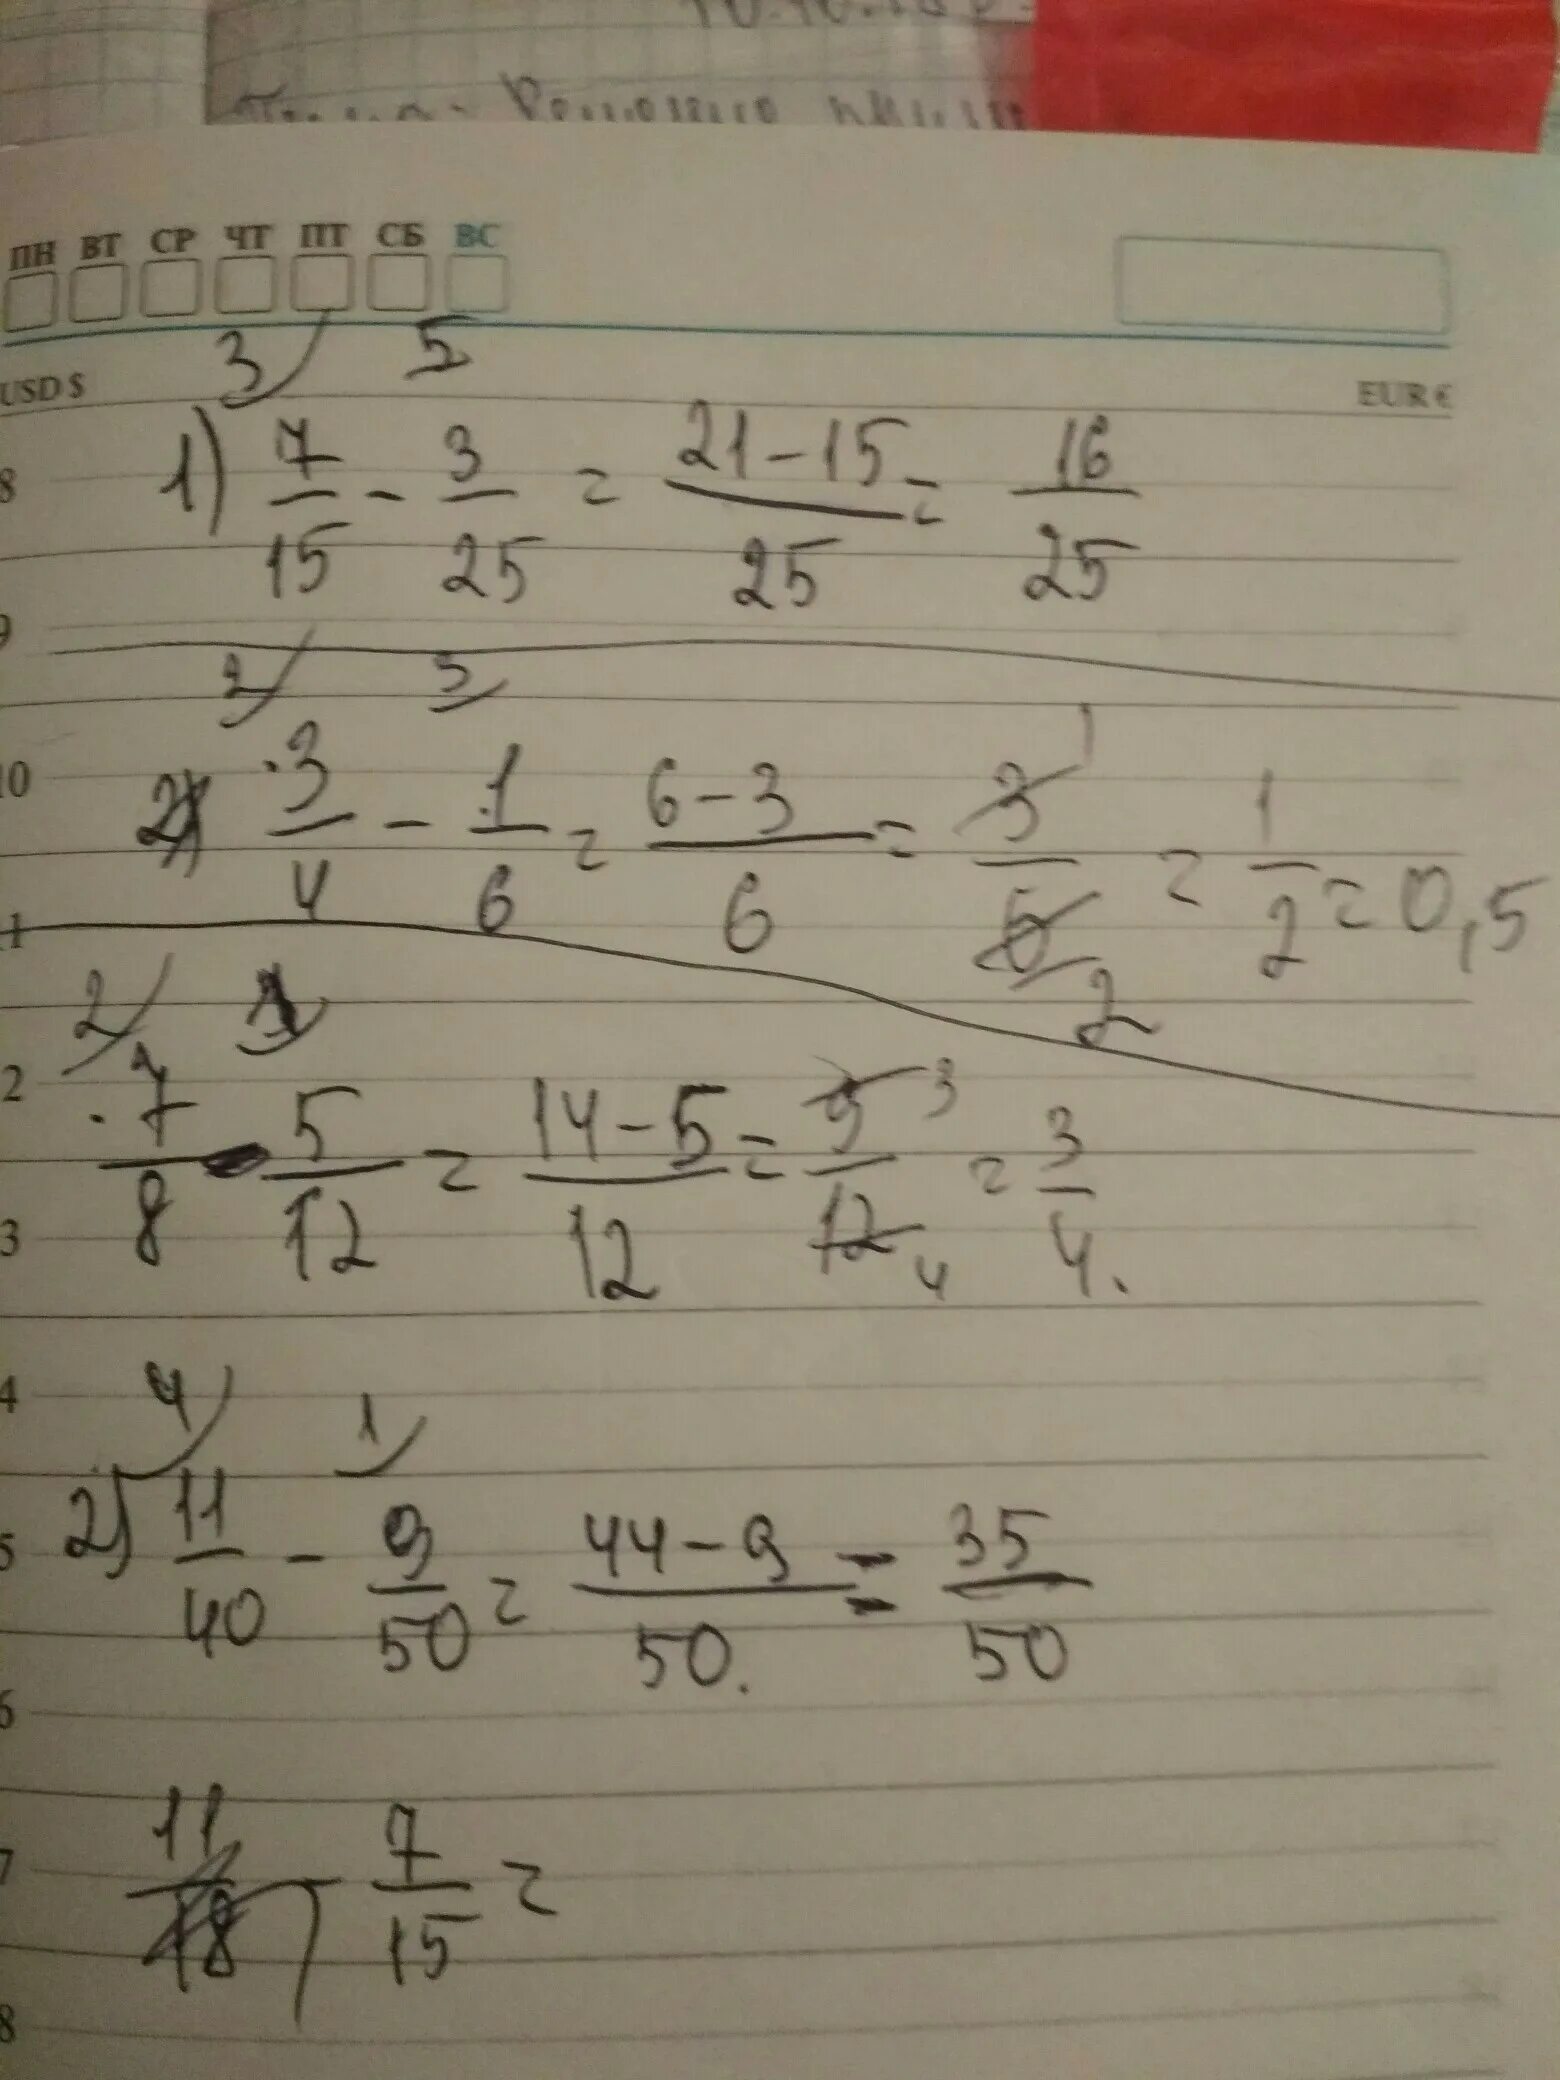 ПН ВТ СР ЧТ ПТ СБ ВС
USD $ EUR €
3 5
8 1) 7/15 - 3/25 = 21-15/25 = 16/25
9
2 3
10 2) 3/4 - 1/6 = 6-3/6 = 3/6 1 2 = 1/2 = 0,5
11
2 1
12 7/8 - 5/12 = 14-5/12 = 9/12 3 4 = 3/4.
3
4 4 1
5 2) 11/40 - 9/50 = 44-9/50. = 35/50
6
7 11/18 - 7/15 =
8